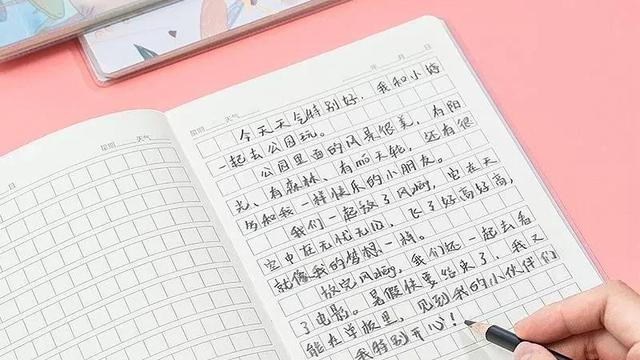 日 星期 天气
星期 天气 年 月 日
今天天气特别好,我和小婷
一起去公园玩。
公园里面的风景很美,有阳
光、有森林、有mó天轮,还有很
多和我一样快乐的小朋友。
我们一起放了风zhēng,它在天
空中在无忧无虑,飞了好高好高,
就像我的梦想一样。
放完风zhēng,我们还一起去看
了电影。暑假快要结束了,我又
能在学校里,见到我的小伙伴们
我特别开心!